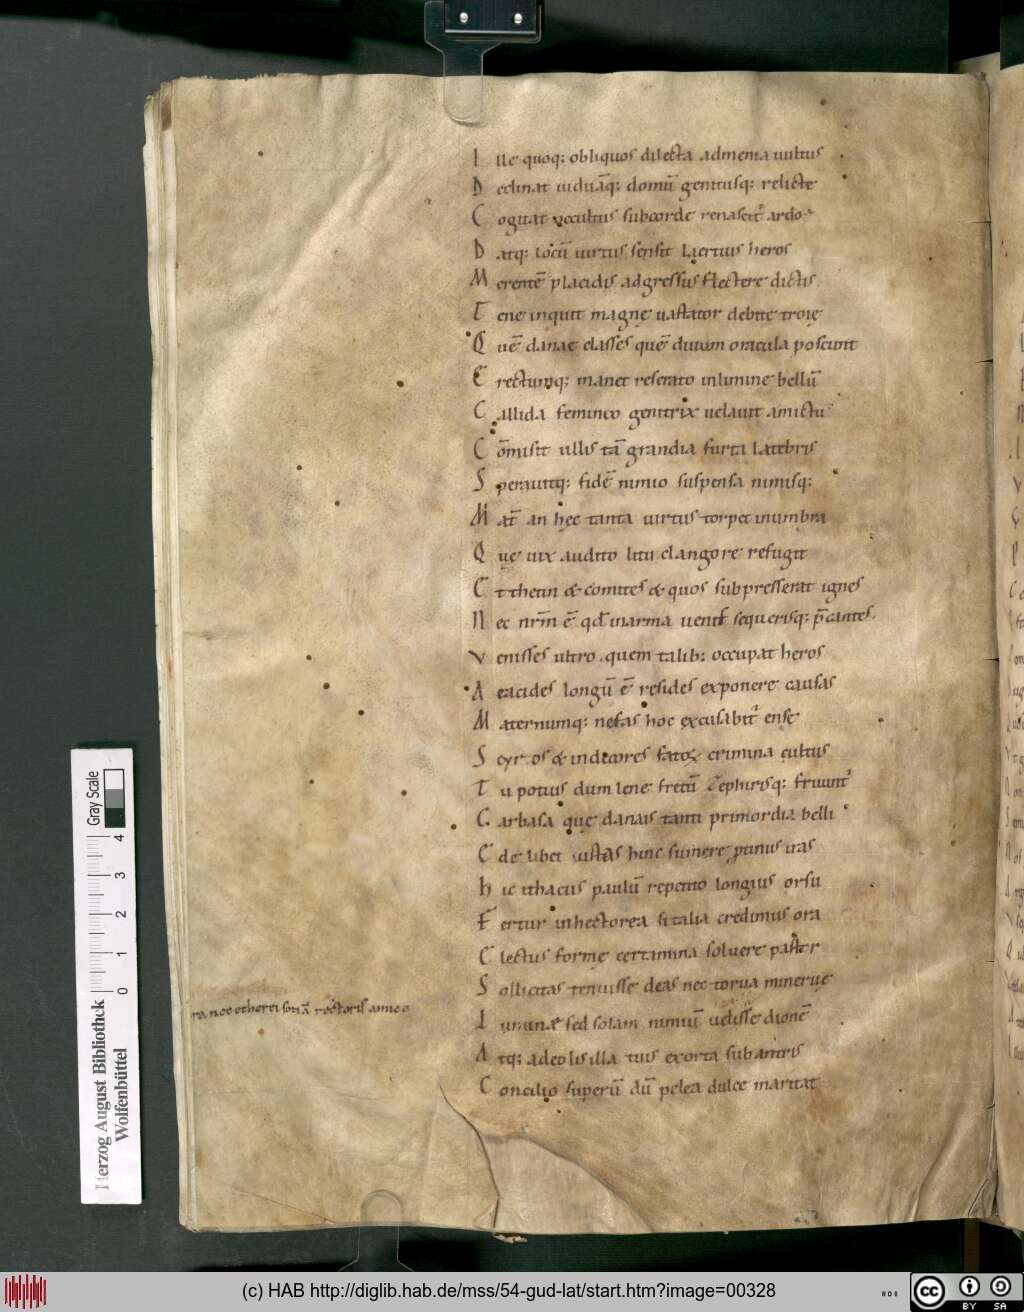 I lle quoq; obliquos dilecta admenia uultus
D eclinat uiduāq; domū gemitusq; relictę
C ogitat occultus subcorde renascit᷒ ardor
D atq; locū uirtus sensit laertius heros
M erentē placidis adgressus flectere dictis
T ene inquit magnę uastator debite troię
Q uē danae classes quē diuum oracula poscunt
E rectumq; manet reserato inlimine bellū
C allida femineo genitrix uelauit amictu
C ōmisit illis tā grandia furta latebris
S perauitq; fidē nimio suspensa nimisq;
M at᷒ an hęc tanta uirtus torpet inumbra
Q ue uix audito litui clangore refugit
E t thetin & comites & quos subpresserat ignes
N ec nrm̄ ē qd̄ inarma uenis sequerisq; p̄cantes
V enisses ultro. quem talib; occupat heros
A eacides longū ē resides exponere causas
M aternumq; nefas hoc excusabit᷒ ense
S cyros & indecores fatoꝝ crimina cultus
T u potius dum lene fretū zephirisq; fruunt᷒
C arbasa que danais tanti primordia belli
E de libet iustas hinc sumere ꝓtinus iras
h ic ithacus paulū repetito longius orsu
F ertur inhectorea si talia credimus ora
E lectus formę certamina soluere pastor
S ollicitas tenuisse deas nec torua minerue
I ununæ sed solam nimiū uelisse dionē
A tq; adeo lis illa tuis exorta subantris
C oncilio superū dū pelea dulce maritat
Gray Scale
0 1 2 3 4
Herzog August Bibliothek
Wolfenbüttel
(c) HAB http://diglib.hab.de/mss/54-gud-lat/start.htm?image=00328
cc BY SA